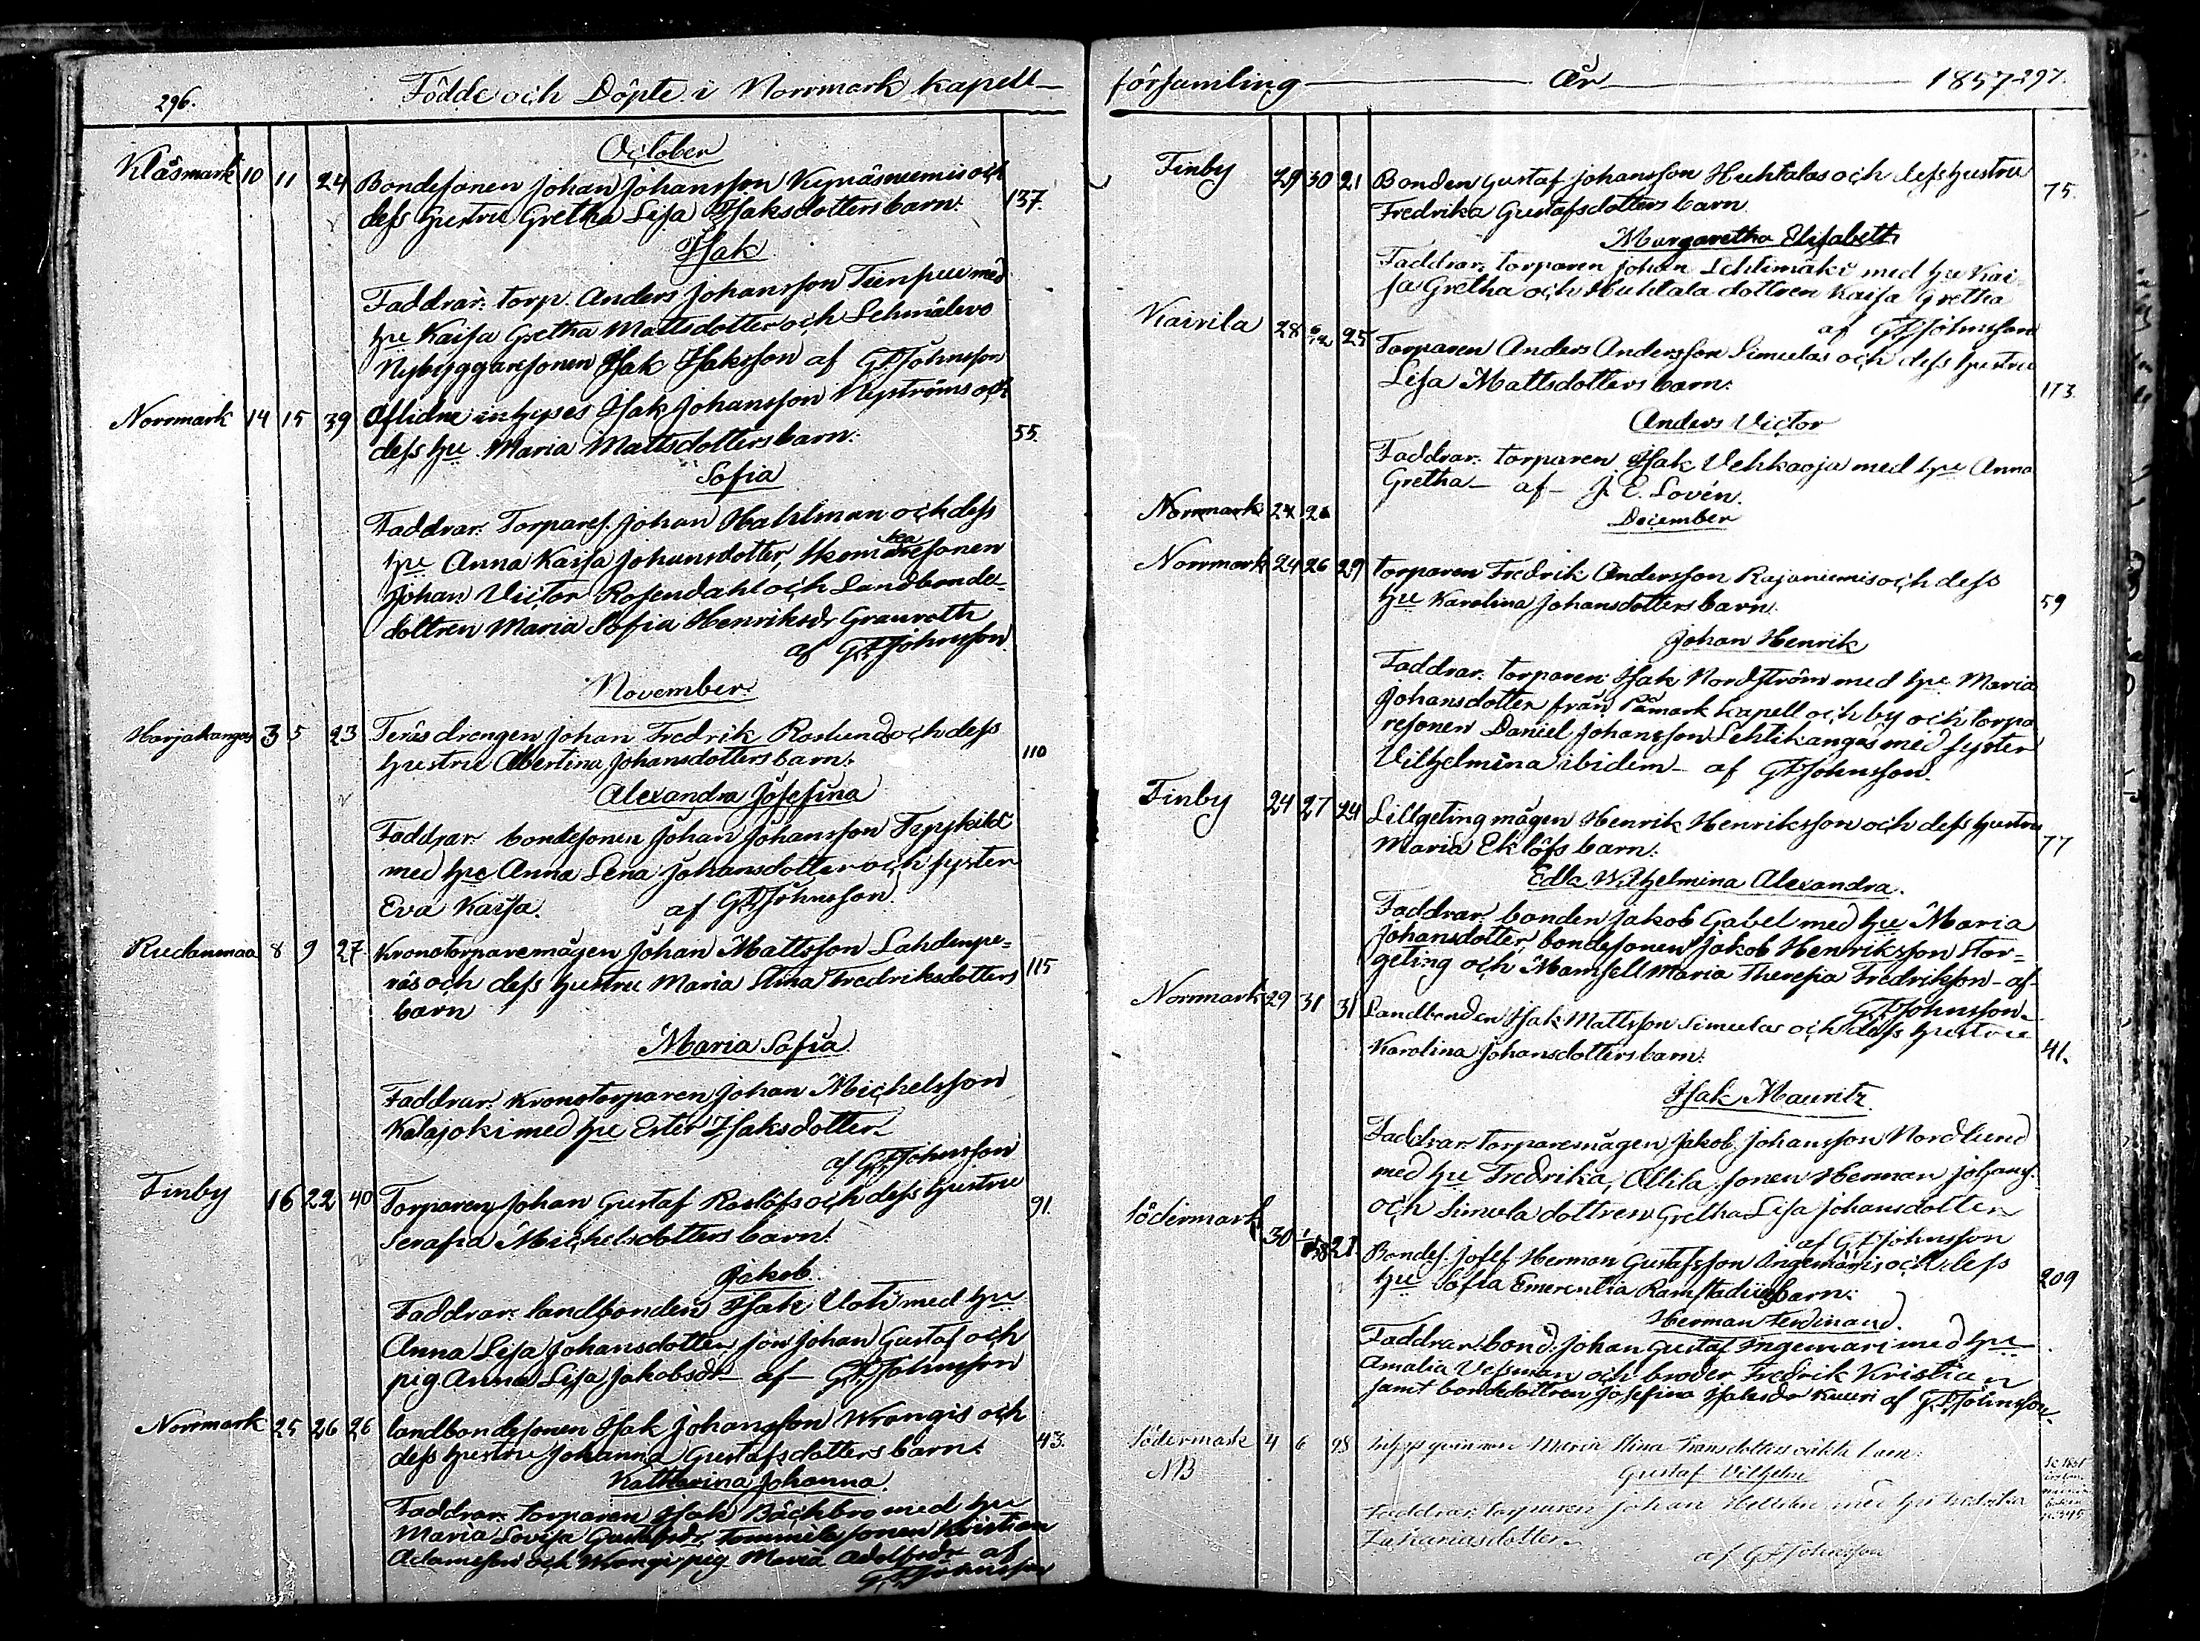 296. Födde och Döpte i Norrmark kapell-
October
Klåsmark 10 11 24 Bondesonen Johan Johansson Kynäsniemis och
dess hustru Gretha Lisa Isaksdotters barn: 137.
Isak
Faddrar: torp. Anders Johansson med
hu Kaisa Gretha Mattsdotter och
Nybyggaresonen Isak Isaksson af G.F. Johnsson
Norrmark 14 15 39 Aflidne inhyses Isak Johansson Nyströms och
dess hu Maria Mattsdotters barn: 55.
Sofia
Faddrar: Torpares. Johan Hahlman och dess
hu Anna Kaisa Johansdotter, Skomakaresonen
Johan Victor Rosendahl och Landbonde-
dottren Maria Sofia Henriksdr Granroth
af G.F. Johnsson
November.
Harjakangas 3 5 23 Teräs drengen Johan Fredrik Roslunds och dess
hustru Albertina Johansdotters barn: 110
Alexandra Josefina
Faddrar: bondesonen Johan Johansson
med hu Anna Lena Johansdotter och syster
Eva Kaisa. af G.F. Johnsson
Rudanmaa 8 9 27 Kronotorparemågen Johan Mattsson Lahdenpe-
räs och dess hustru Maria Stina Fredriksdotters 115
barn
Maria Sofia
Faddrar: Kronotorparen Johan Michelsson
Kalajoki med hu Ester Isaksdotter
af G.F. Johnsson
Finby 16 22 40 Torparen Johan Gustaf Roslöfs och dess hustru
Serafia Michelsdotters barn: 91.
Jakob.
Faddrar: landbonden Isak Uoti med hu
Anna Lisa Johansdotter, son Johan Gustaf och
pig Anna Lisa Jakobsdr af G.F. Johnsson
Norrmark 25 26 26 landbondesonen Isak Johansson Wrangis och
dess hustru Johanna Gustafsdotters barn: 43.
Katharina Johanna.
Faddrar: torparen Isak Bäckbro med hu
Maria Lovisa Gustafsdr, Tommila sonen Kristian
Adamsson och Wrangi pig Maria Adolfsdr af
G.F. Johnsson
församling År 1857 297.
Finby 29 30 21 Bonden Gustaf Johansson Huhtalas och dess hustru
Fredrika Gustafsdotters barn. 75.
Margaretha Elisabeth
Faddrar: torparen Johan Lehtimäki med hu Kai-
sa Gretha och Huhtala dottren Kaisa Gretha
af G.F. Johnsson
Kairila 28 6/12 25 Torparen Anders Andersson Simulas och dess hustru
Lisa Mattsdotters barn: 113.
Anders Victor
Faddrar: torparen Isak Vehkaoja med hu Anna
Gretha af J. E. Lovén.
Norrmark 24 26
December
Norrmark 24 26 29 torparen Fredrik Andersson Rajaniemis och dess
hu Karolina Johansdotters barn. 59
Johan Henrik
Faddrar: torparen Isak Nordström med hu Maria
Johansdotter från Påmark kapell och by och torpa
resonen Daniel Johansson Lehtikangas med syster
Vilhelmina ibidem af G.F. Johnsson.
Finby 24 27 24 Lillgeting mågen Henrik Henriksson och dess hustru
Maria Eklöfs barn: 77
Edla Wilhelmina Alexandra.
Faddrar: bonden Jakob Gabel med hu Maria
Johansdotter, bondesonen Jakob Henriksson Stor-
geting och Mamsell Maria Theresia Fredrikson af
G.F. Johnsson.
Norrmark 29 31 31 Landbonden Isak Mattsson Simulas och dess hustru
Karolina Johansdotters barn: 41.
Isak Mauritz
Faddrar: torparemågen Jakob Johansson Nordlund
med hu Fredrika, Ollila sonen Herman Johans.
och Simula dottren Gretha Lisa Johansdotter
af G.F. Johnsson
Södermark 30 21 Bondes. Josef Herman Gustafsson Ingemaris och dess
hu Sofia Emerentia Ramstadii barn: 209
Herman Ferdinand.
Faddrar: bond. Johan Gustaf Ingemari med hu
Amalia Vesman och broder Fredrik Kristian
samt bondedottren Josefina Isaksdr Kuuri af G.F. Johnsson.
Södermark 4 6 28 Maria Stina Fransdotters oäkta barn:
NB Gustaf Vilhelm
Faddrar: torparen Johan med hu Fredrika
Zakariasdotter.
af G.F. Johnsson